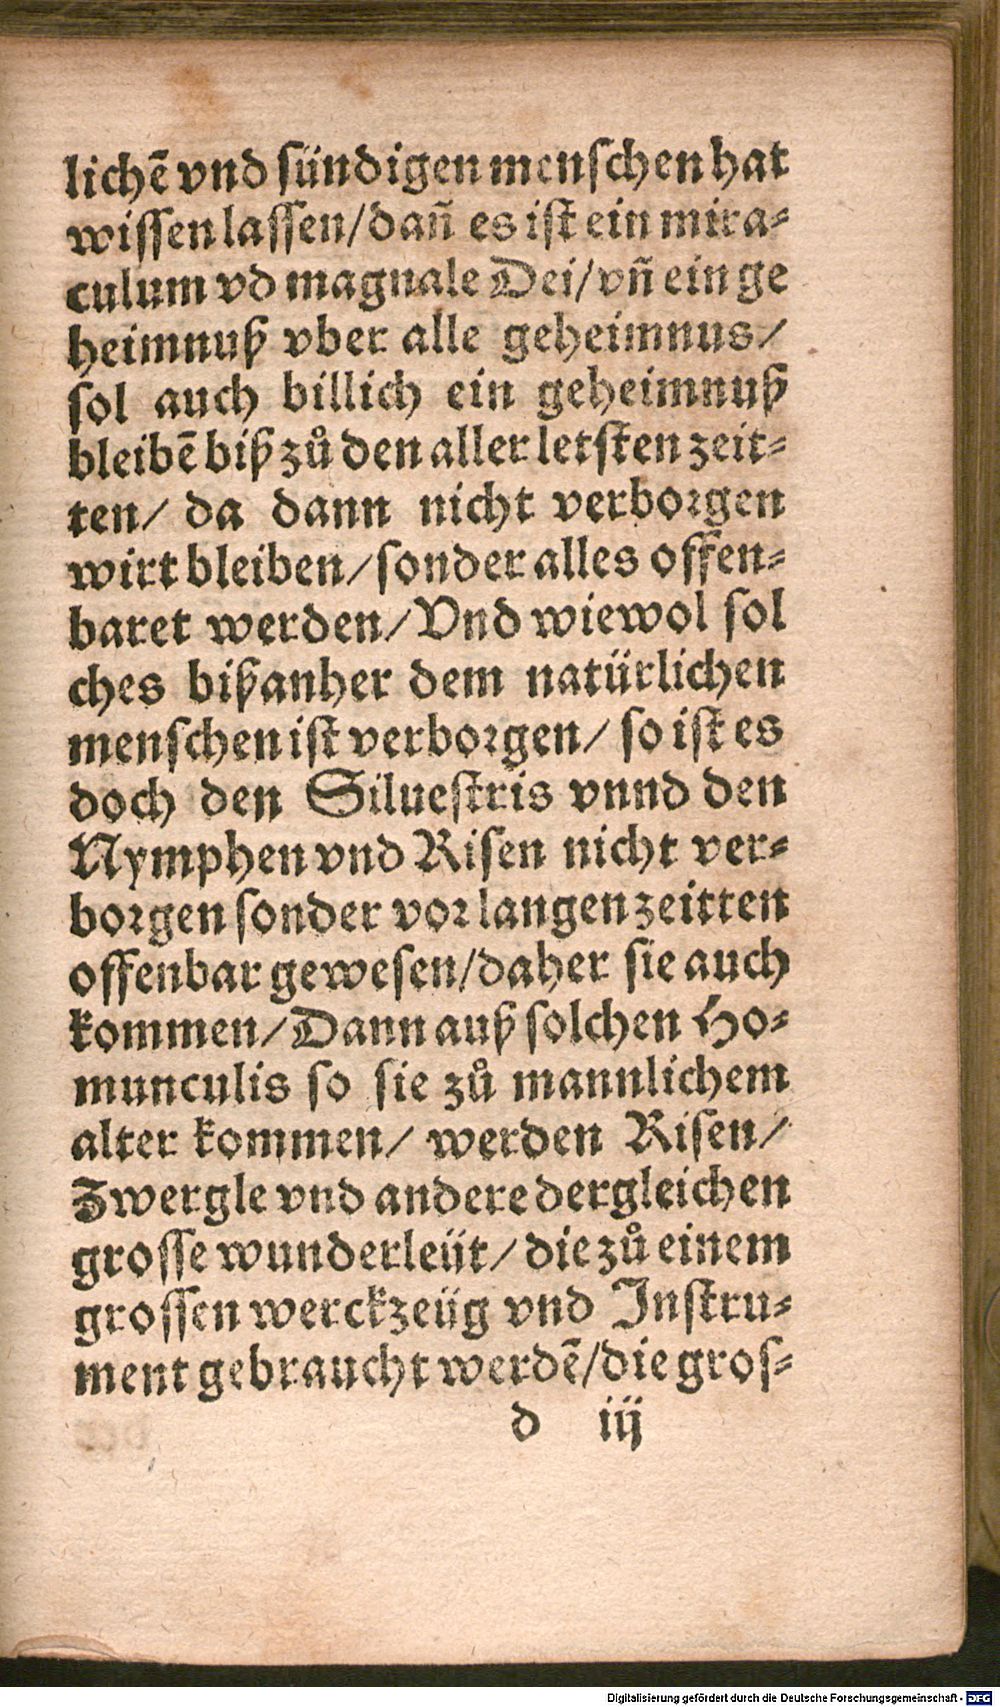 lichẽ vnd sündigen menschen hat
wissen lassen/dañ es ist ein mira⸗
culum vd magnale Dei/vñ ein ge
heimnuß vber alle geheimnus/
sol auch billich ein geheimnuß
bleibẽ biß zů den aller letsten zeit⸗
ten/ da dann nicht verborgen
wirt bleiben/sonder alles offen⸗
baret werden/Vnd wiewol sol
ches bißanher dem natürlichen
menschen ist verborgen/ so ist es
doch den Siluestris vnnd den
Nymphen vnd Risen nicht ver⸗
borgen sonder vor langen zeitten
offenbar gewesen/daher sie auch
kommen/Dann auß solchen Ho⸗
munculis so sie zů mannlichem
alter kommen/ werden Risen/
Zwergle vnd andere dergleichen
grosse wunderleüt/ die zů einem
grossen werckzeüg vnd Instru⸗
ment gebraucht werdẽ/die gros⸗
d iij
Digitalisierung gefördert durch die Deutsche Forschungsgemeinschaft - DFG